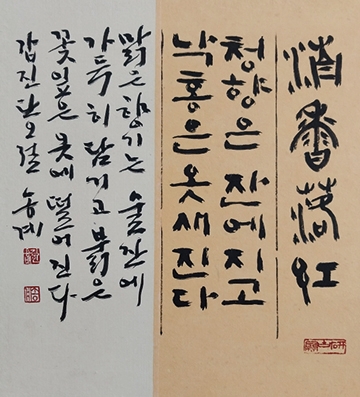 清香落紅
청향은 잔에지고
낙홍은 옷새진다
맑은 향기는 술잔에
가득히 담기고 붉은
꽃잎은 옷에 떨어진다
갑진 단오절